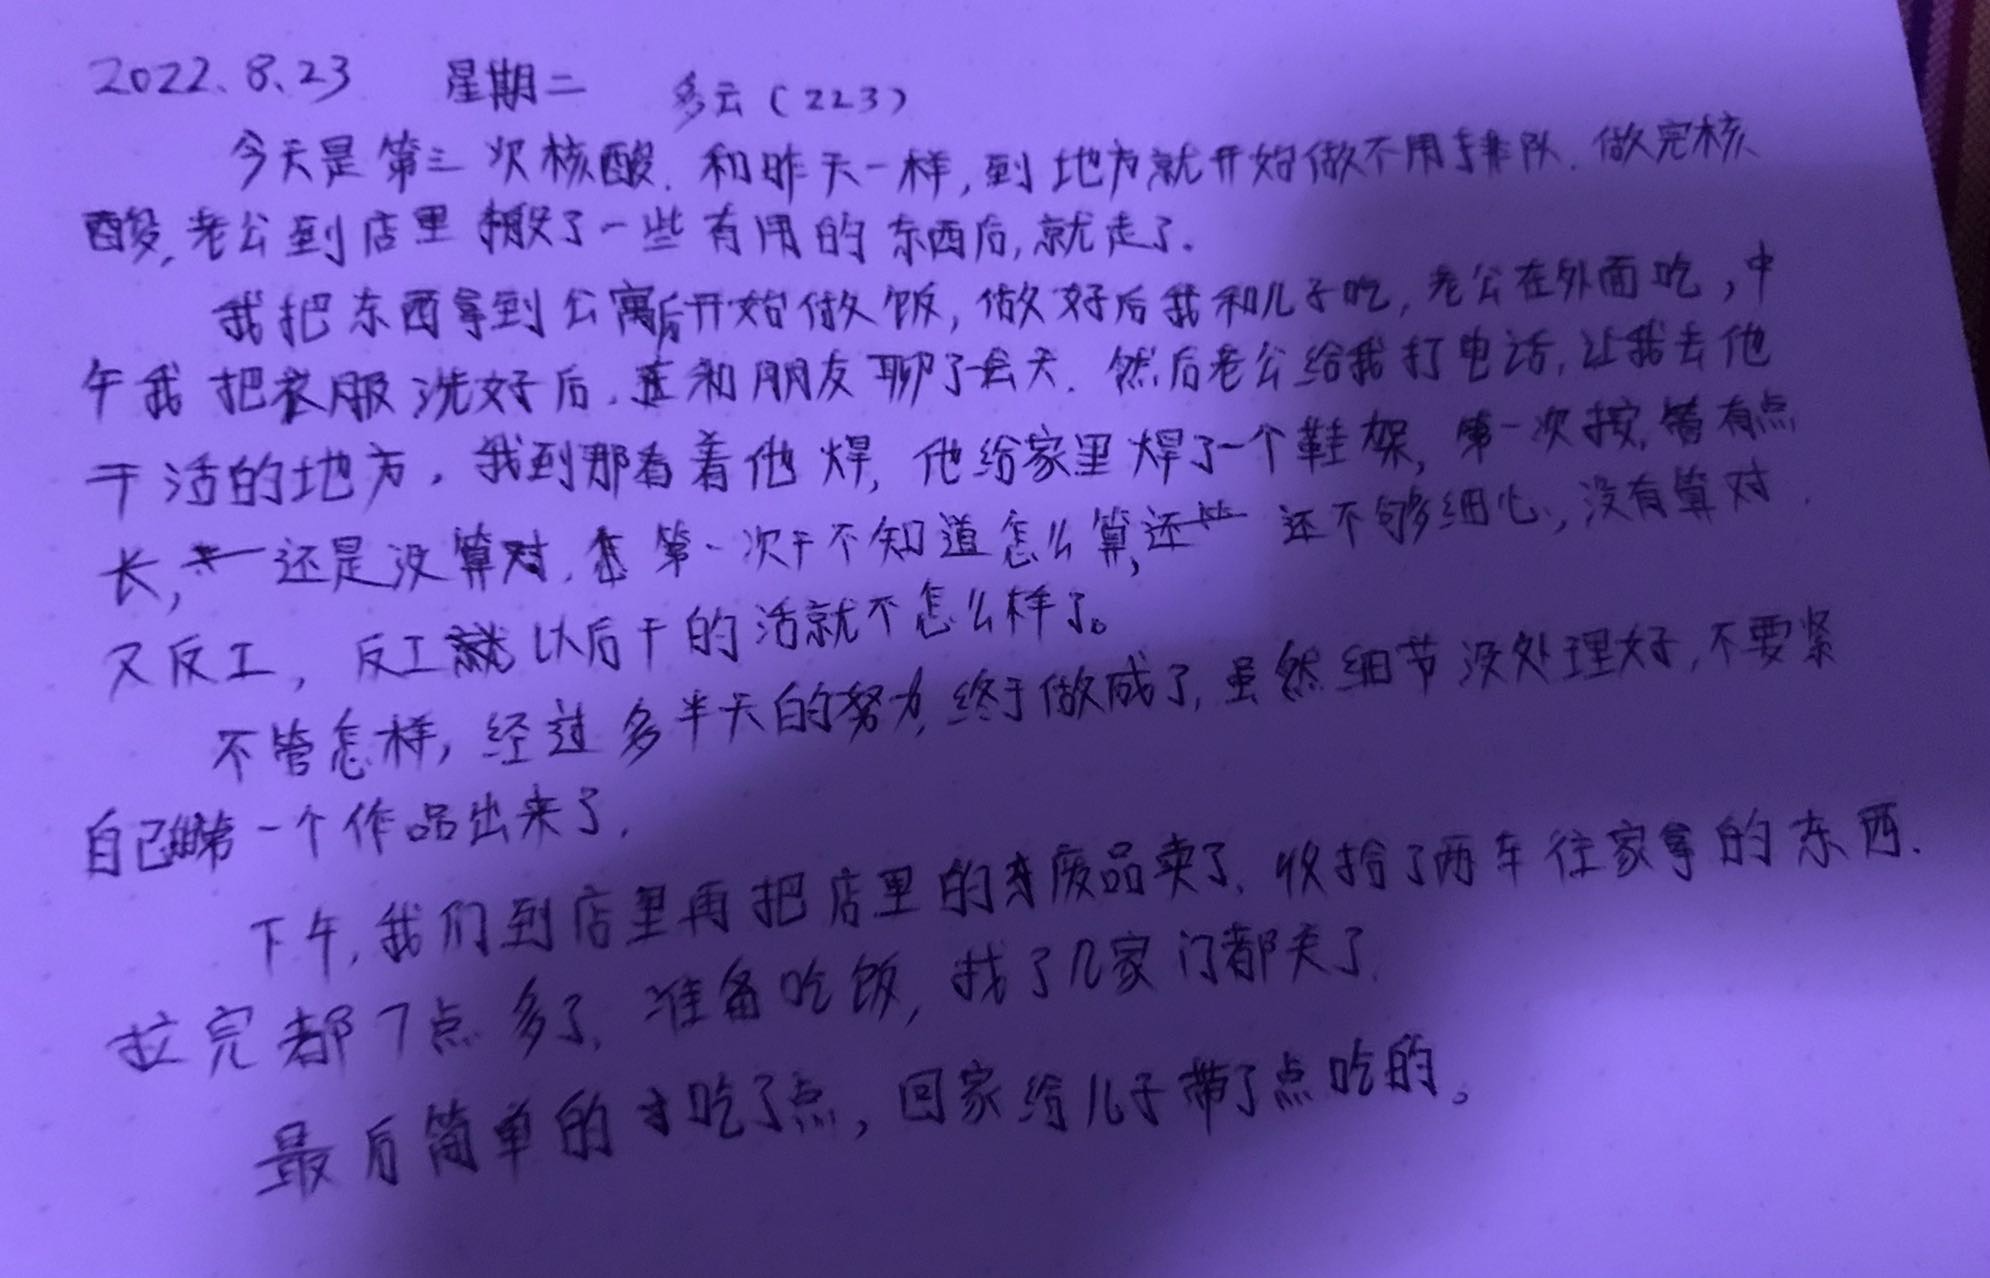 2022.8.23 星期二 多云(223)
今天是第三次核酸.和昨天一样,到地方就开始做不用排队.做完核
酸,老公到店里搬了一些有用的东西后,就走了.
我把东西拿到公寓后开始做饭,做好后我和儿子吃,老公在外面吃,中
午我把衣服洗好后.和朋友聊了会天.然后老公给我打电话,让我去他
干活的地方.我到那看着他焊,他给家里焊了一个鞋架,第一次按,有点
长,还是没算对,第一次干不知道怎么算,还不够细心,没有算对.
又反工,反工就以后干的活就不怎么样了。
不管怎样,经过多半天的努力,终于做成了,虽然细节没处理好,不要紧
自己第一个作品出来了.
下午,我们到店里再把店里的废品卖了.收拾了两车往家拿的东西.
拉完都7点多了.准备吃饭,找了几家门都关了.
最后简单的吃了点,回家给儿子带了点吃的。